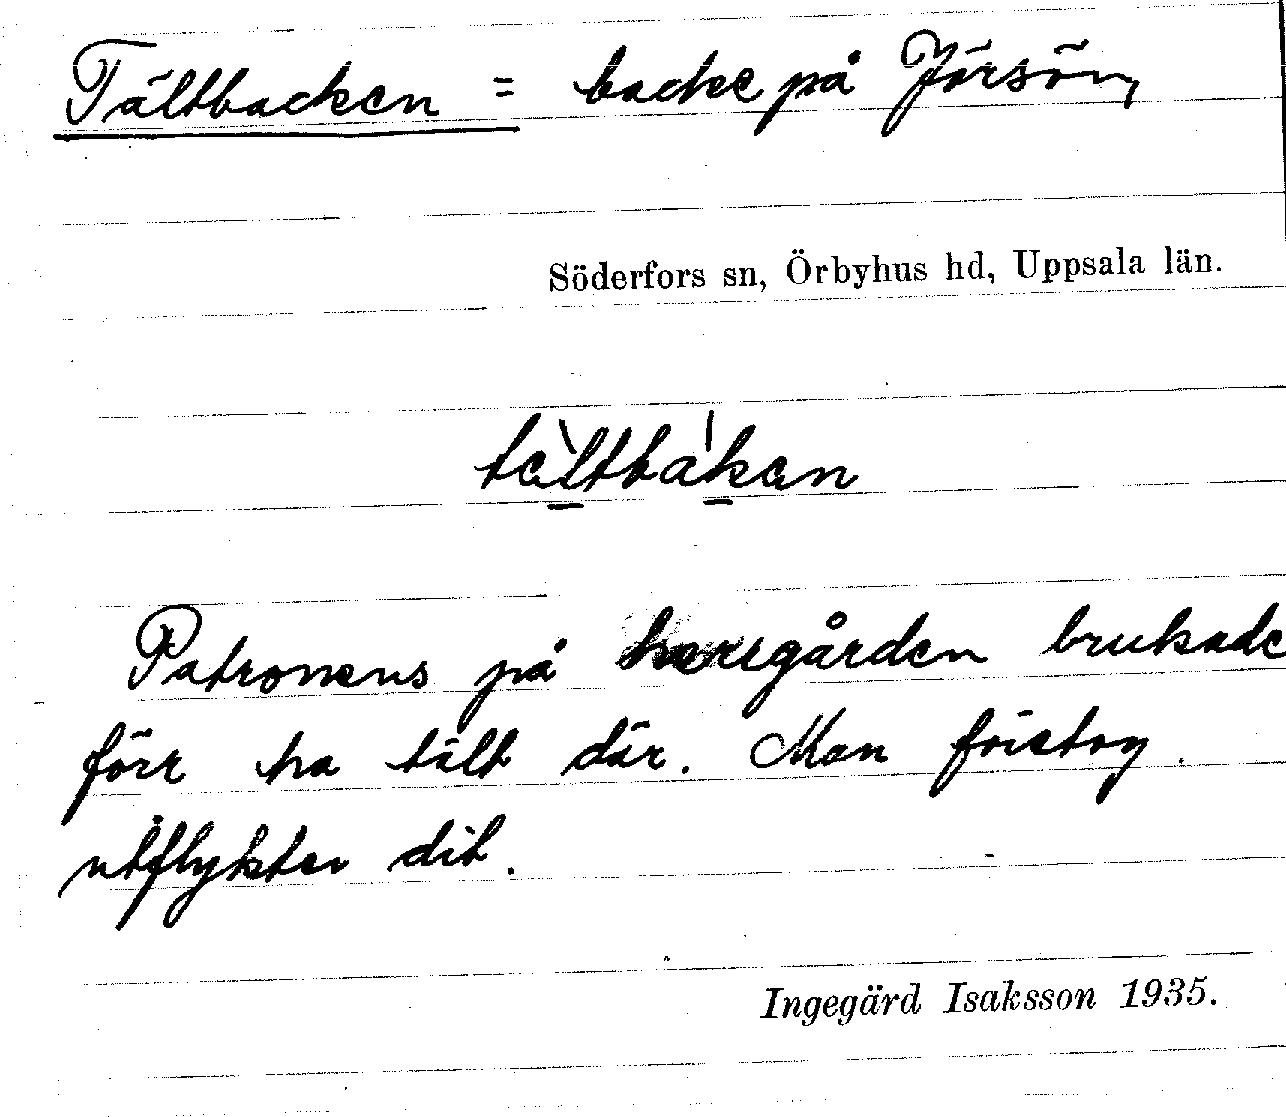 Tältbacken = backe på Jörsön,
Söderfors sn, Örbyhus hd, Uppsala län.
tæ̀ltbákan
Patronens på herrgården brukade
förr ha tält där. Man företog
utflykter dit.
Ingegärd Isaksson 1935.